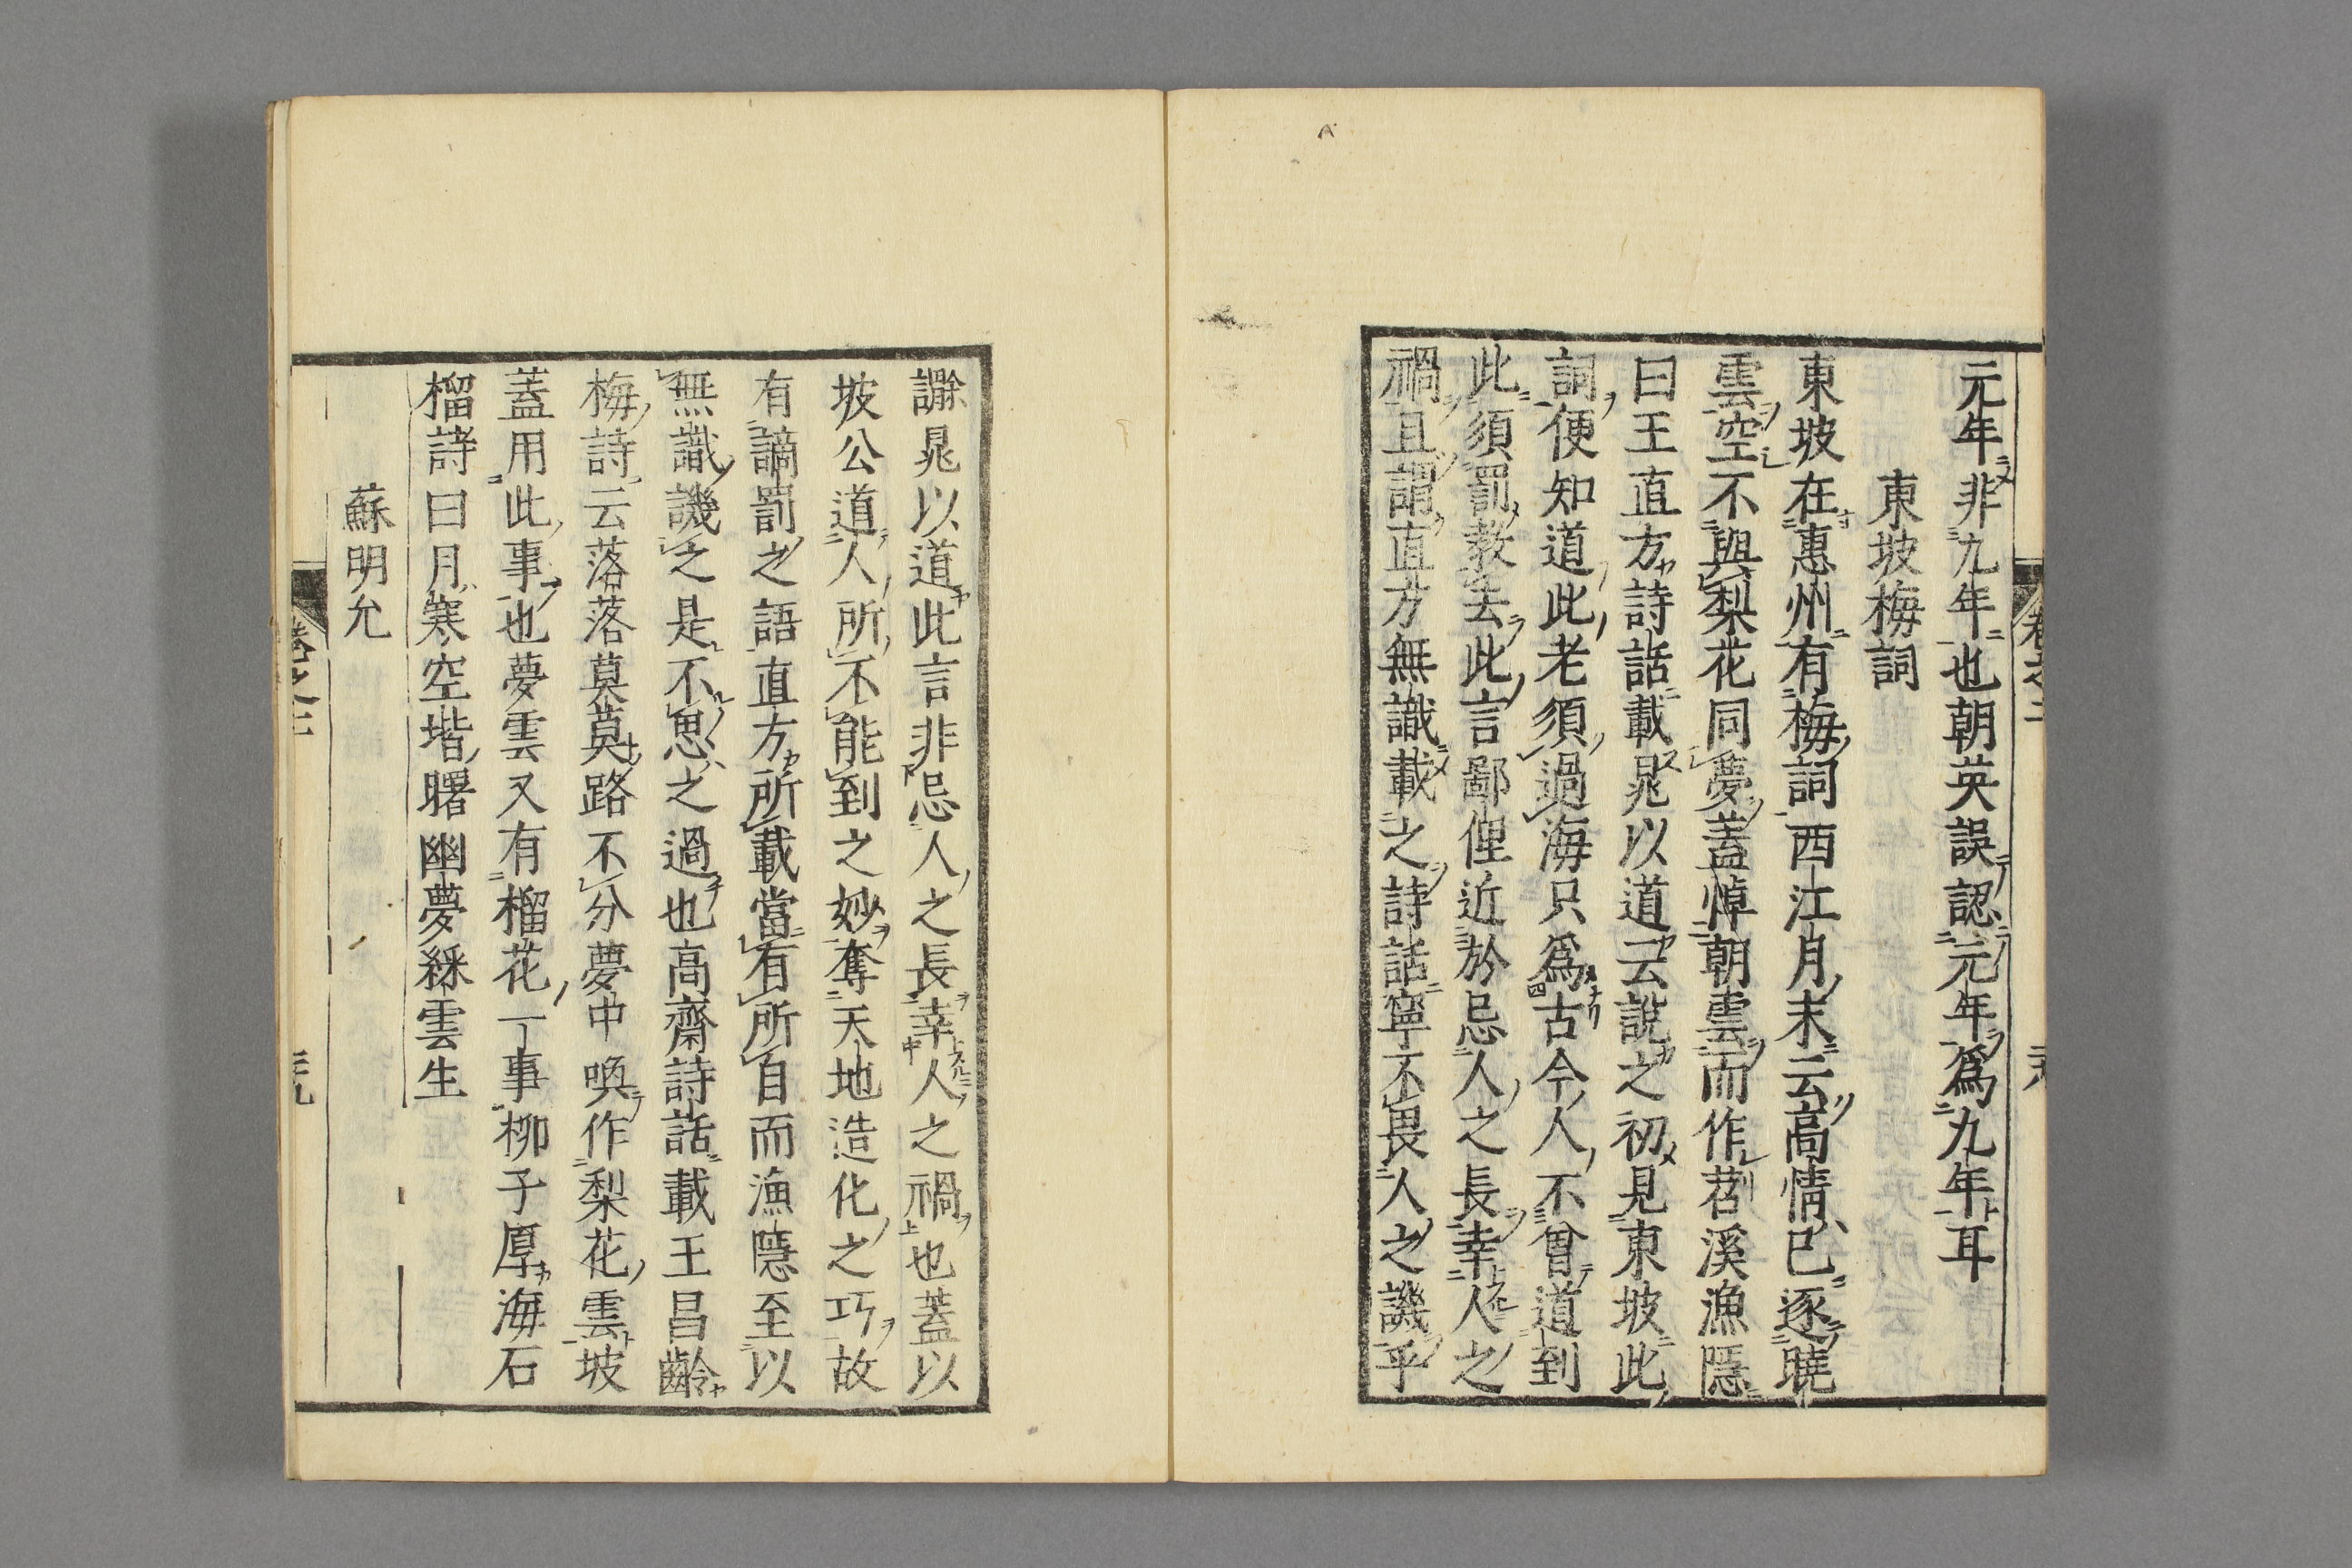 元年非九年也朝英誤認元年爲九年耳
東坡梅詞
東坡在惠州有梅詞西江月末云高情已逐曉
雲空不與梨花同夢蓋悼朝雲而作苕溪漁隱
曰王直方詩話載晁以道云說之初見東坡此
詞便知道此老須過海只爲古今人不曾道到
此須罰教去此言鄙俚近於忌人之長幸人之
禍且謂直方無識載之詩話寧不畏人之譏乎
卷之二
蘇明允
謂晁以道此言非忌人之長幸人之禍也蓋以
坡公道人所不能到之妙奪天地造化之巧故
有謫罰之語直方所載當有所自而漁隱至以
無識譏之是不思之過也高齋詩話載王昌齡
梅詩云落落莫莫路不分夢中喚作梨花雲坡
蓋用此事也夢雲又有榴花一事柳子厚海石
榴詩曰月寒空堦曙幽夢綵雲生